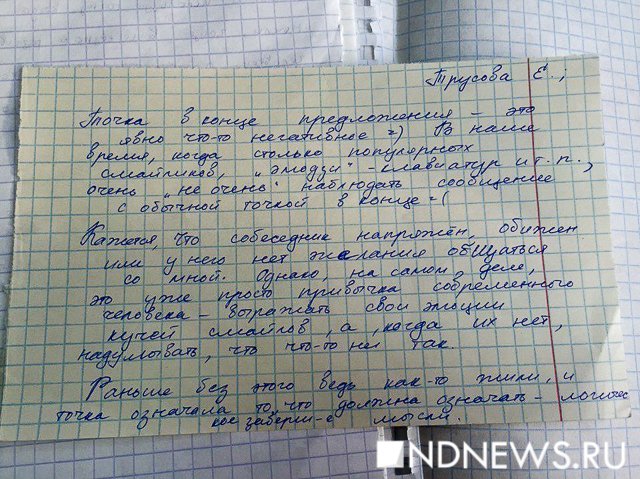 Трусова Е.,
Точка в конце предложения – это
явно что-то негативное =) В наше
время, когда столько популярных
смайликов, "эмодзи"-клавиатур и т.п.,
очень "не очень" наблюдать сообщение
с обычной точкой в конце =(
Кажется, что собеседник напряжён, обижен
или у него нет желания общаться
со мной. Однако, на самом деле,
это уже просто привычка современного
человека – выражать свои эмоции
кучей смайлов, а, когда их нет,
надумывать, что что-то не так.
Раньше без этого ведь как-то жили, и
точка означала то, что должна означать – логичес
кое заверш-е мысли.
NDNEWS.RU